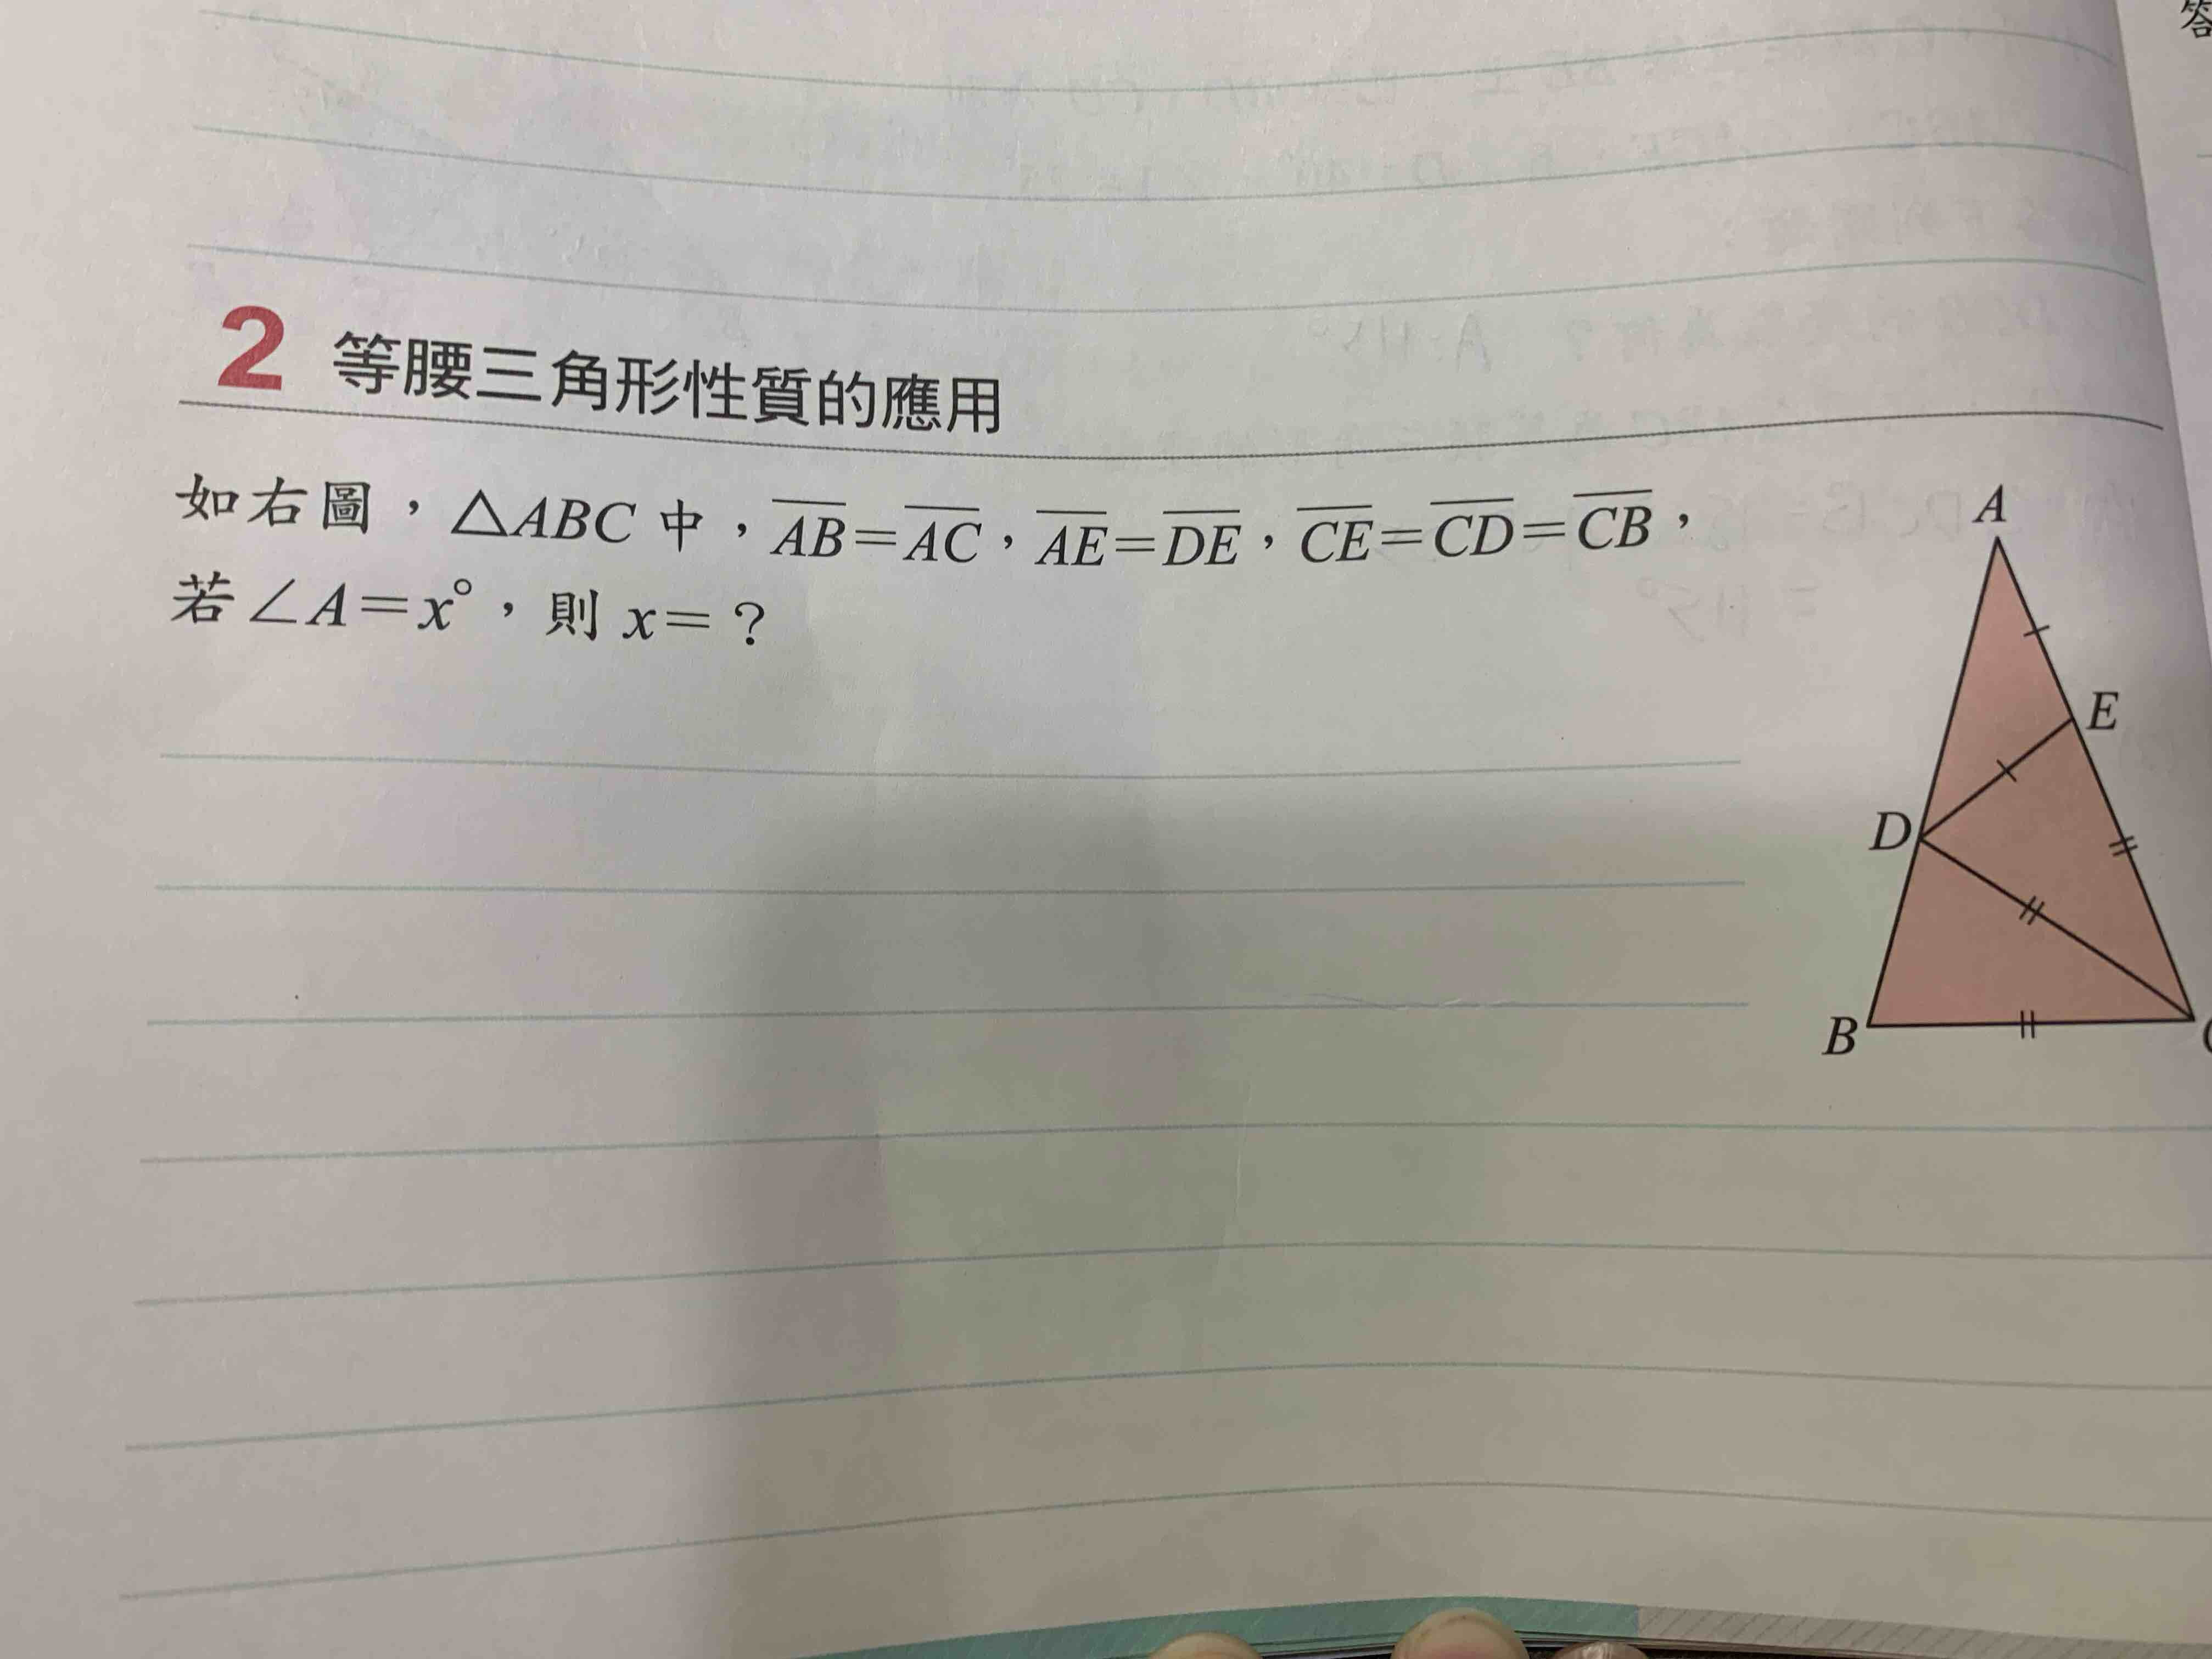 答
2 等腰三角形性質的應用
如右圖，△ABC 中，AB=AC，AE=DE，CE=CD=CB，
若∠A=x°，則 x=？
A
E
D
B